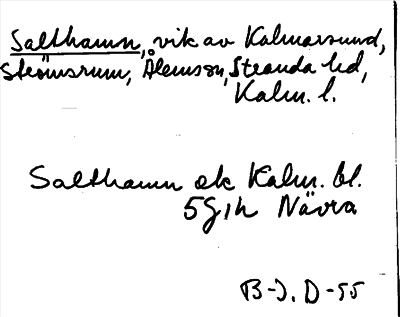 Salthamn, vik av Kalmarsund,
Strömsrum, Ålemssn, Stranda hd,
Kalm. l.
Salthamn ek Kalm. bl.
5G1h Nävra
B-J. D-55